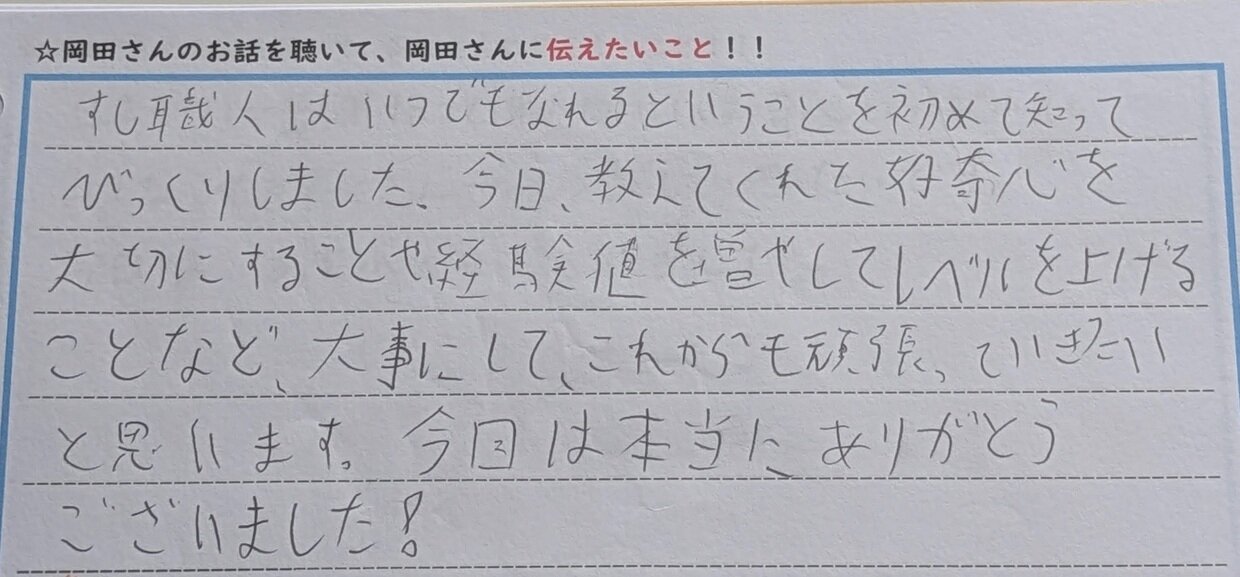 ☆岡田さんのお話を聴いて、岡田さんに伝えたいこと！！
すし職人はいつでもなれるということを初めて知って
びっくりしました。今日、教えてくれた好奇心を
大切にすることや経験値を増やしてレベルを上げる
ことなど、大事にして、これからも頑張っていきたい
と思います。今回は本当にありがとう
ございました！